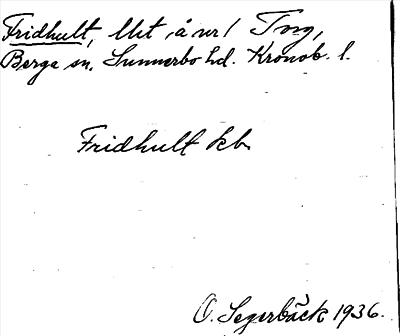 Fridhult, llt å nr 1 Torg,
Berga sn. Sunnerbo hd. Kronob. l.
Fridhult kb.
O. Segerbäck 1936.